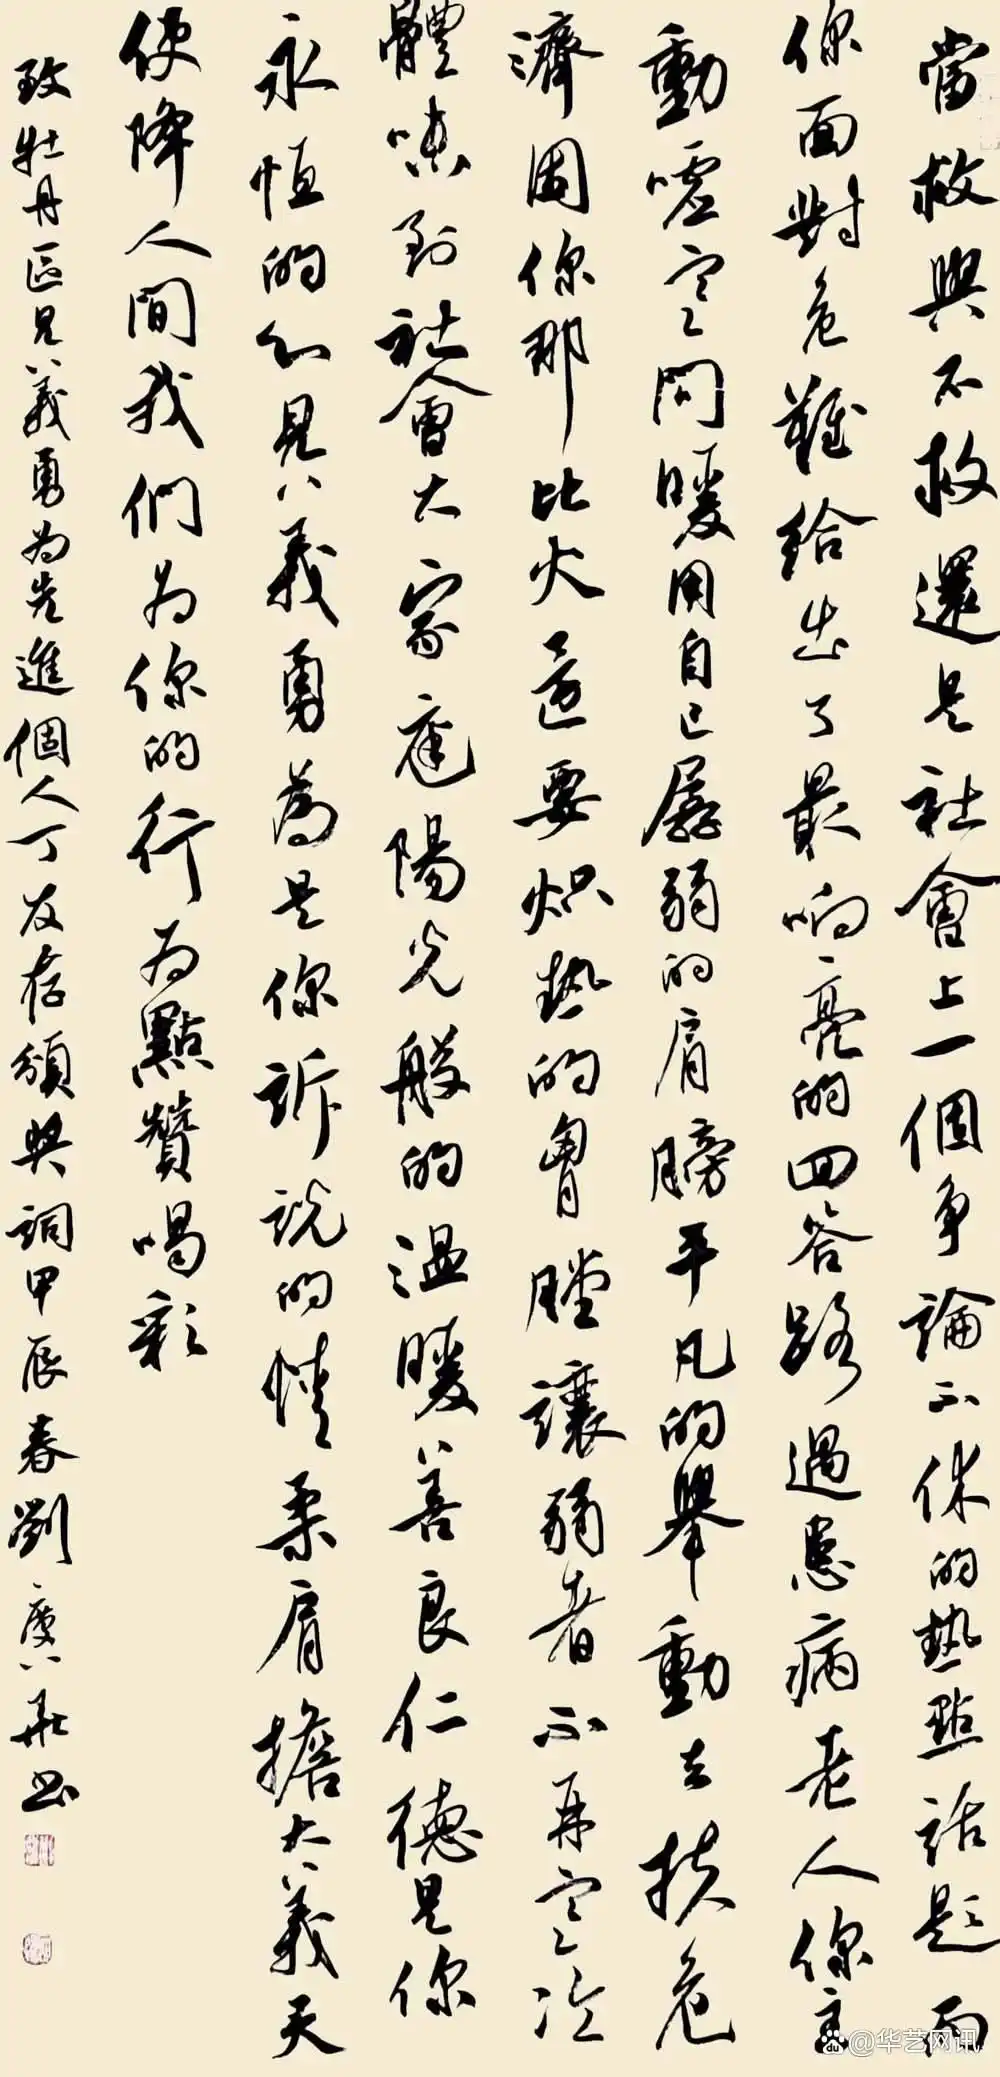 當救與不救還是社會上一個爭論不休的熱點話題而
你面對危難給出了最响亮的回答路遇患病老人你主
動噓寒問暖用自己孱弱的肩膀平凡的舉動去扶危
濟困你那比火還要炽热的胷膛讓弱者不再寒冷
體味到社會大家庭陽光般的温暖善良仁德是你
永恒的心見義勇為是你訴説的情柔肩擔大義天
使降人間我們为你的行为點贊喝彩
致牡丹區見義勇为先進個人丁友存頒獎詞甲辰春劉廣 書
@华艺网讯